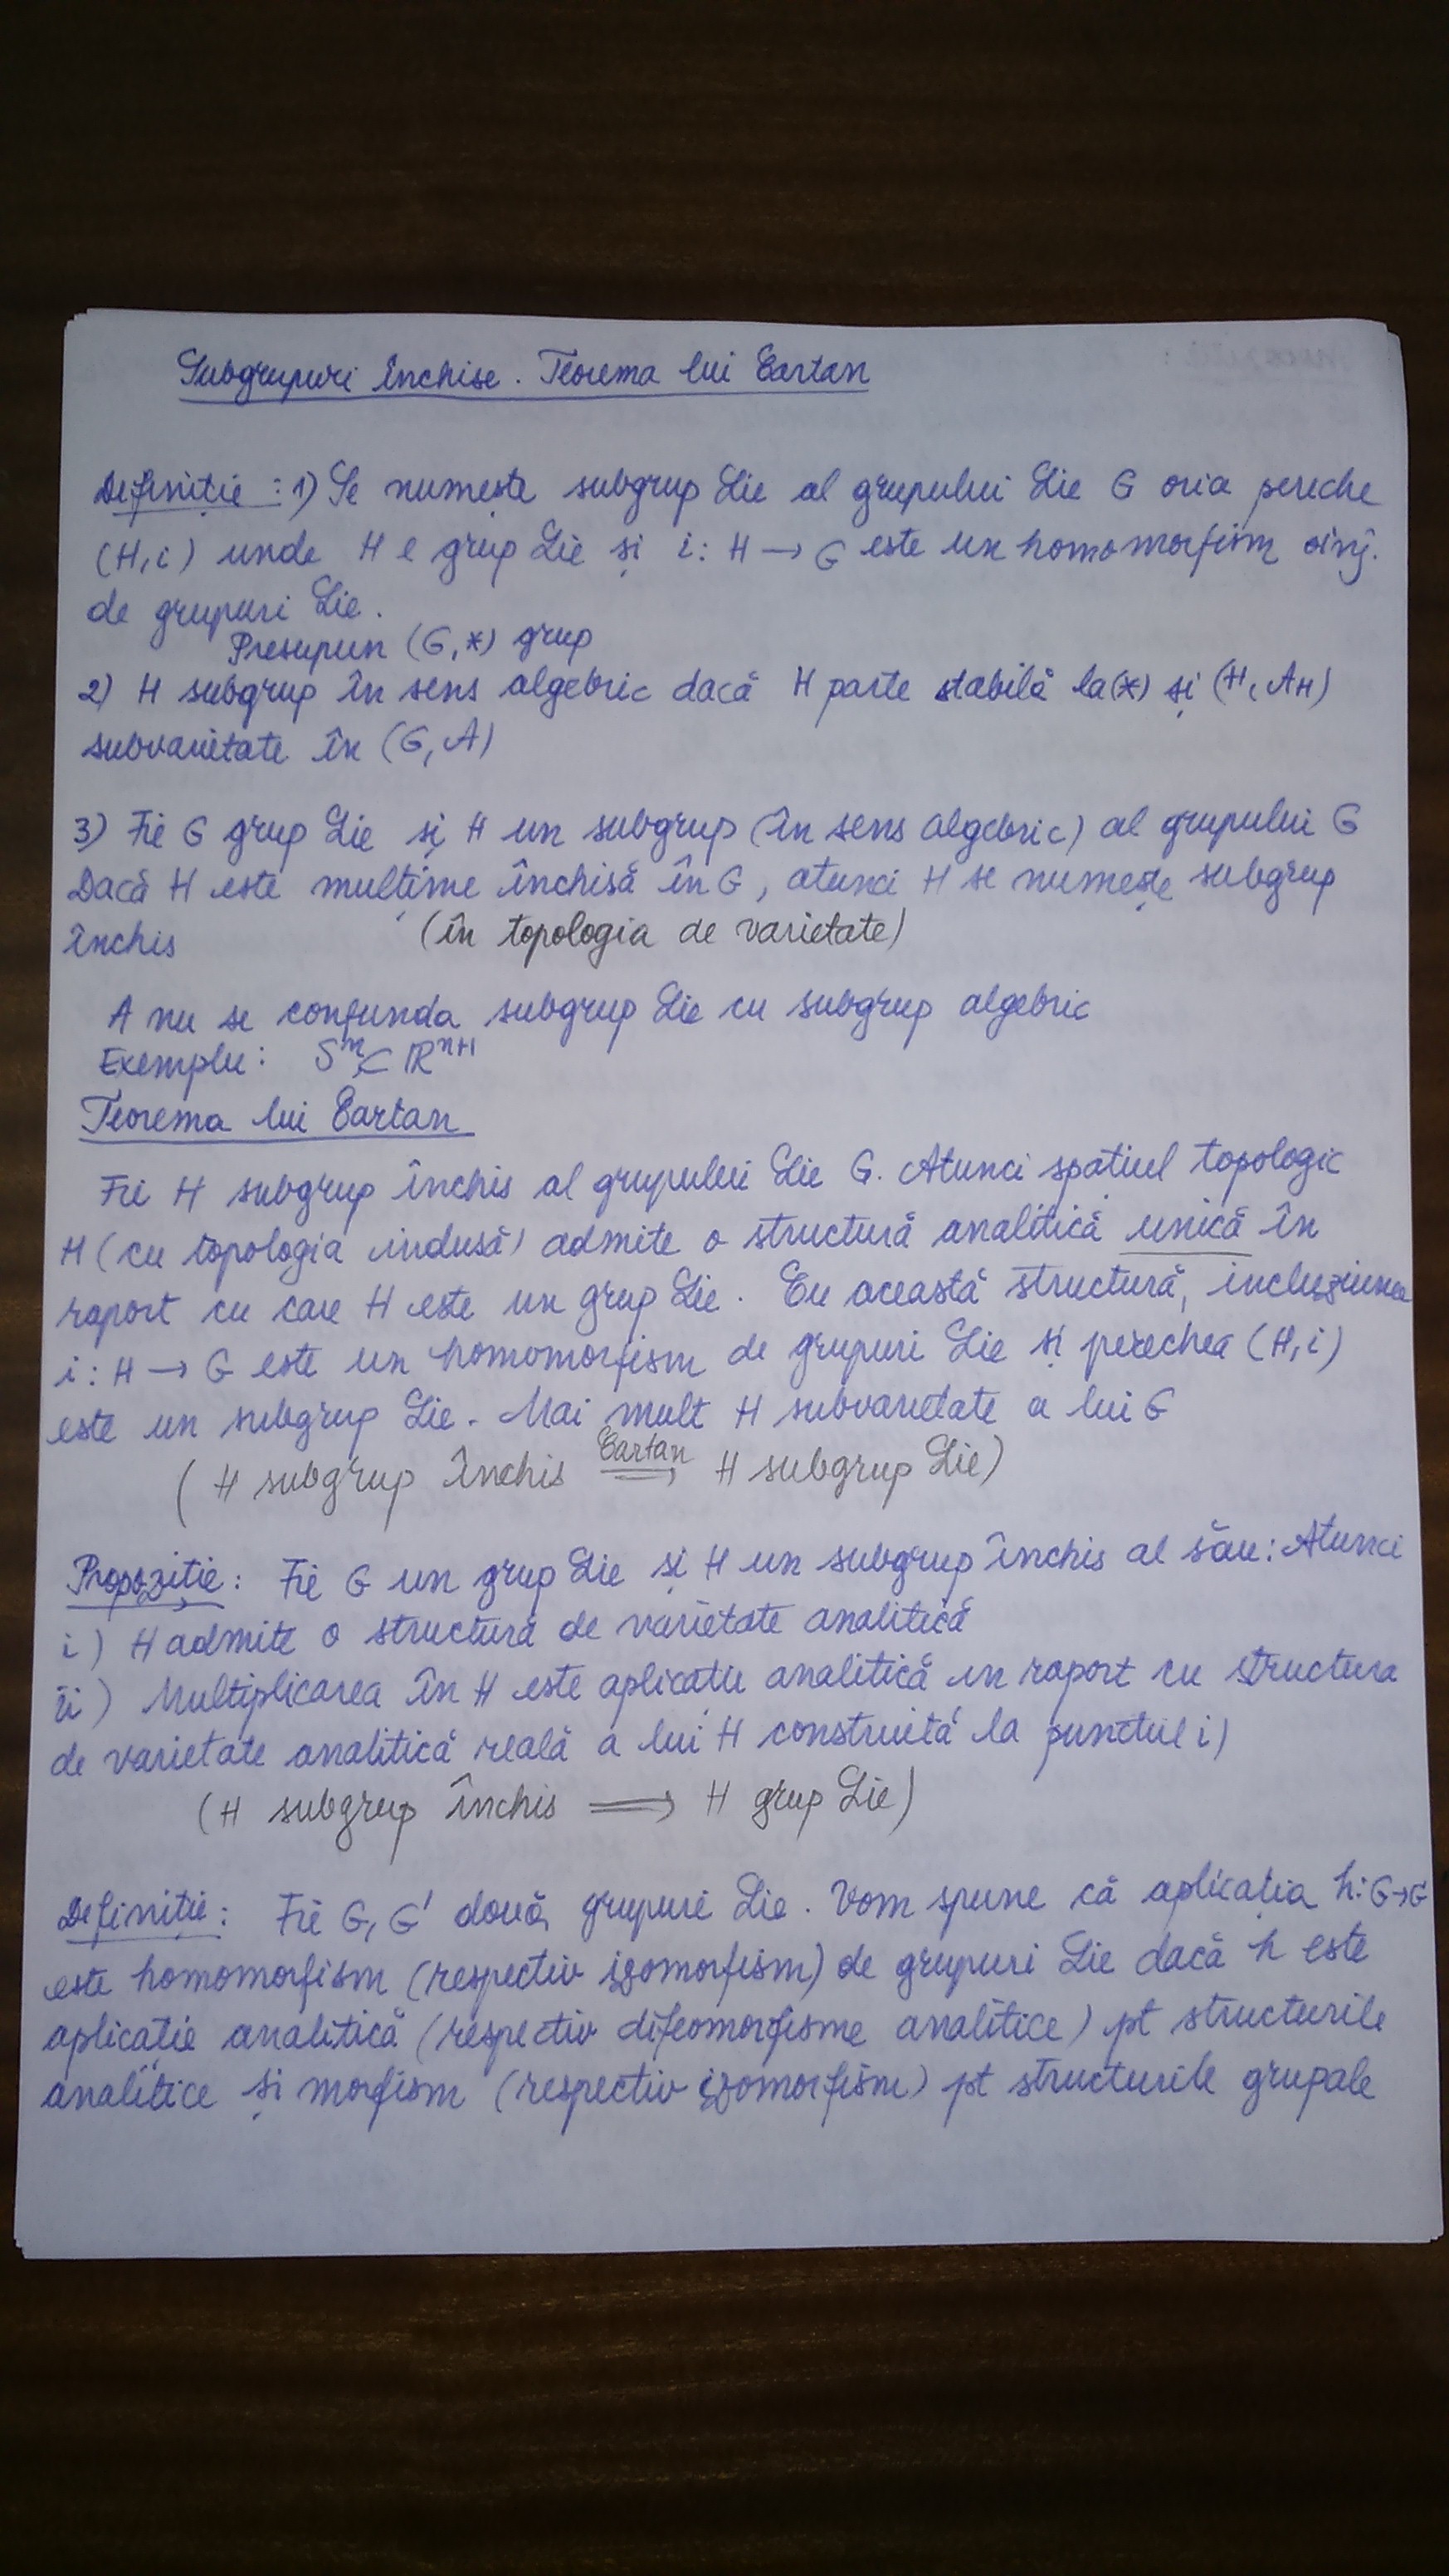 Subgrupuri închise. Teorema lui Cartan
Definiție: 1) Se numește subgrup Lie al grupului Lie G oria pereche
(H, i) unde H e grup Lie și i: H → G este un homomorfism inj.
de grupuri Lie.
Presupun (G, *) grup
2) H subgrup în sens algebric dacă H parte stabilă la (*) și (H, A_H)
subvarietate în (G, A)
3) Fie G grup Lie și H un subgrup (în sens algebric) al grupului G
Dacă H este mulțime închisă în G, atunci H se numește subgrup
închis (în topologia de varietate)
A nu se confunda subgrup Lie cu subgrup algebric
Exemplu: Sⁿ ⊂ ℝⁿ⁺¹
Teorema lui Cartan
Fie H subgrup închis al grupului Lie G. Atunci spațiul topologic
H (cu topologia indusă) admite o structură analitică unică în
raport cu care H este un grup Lie. Cu această structură, incluziunea
i: H → G este un homomorfism de grupuri Lie și perechea (H, i)
este un subgrup Lie. Mai mult H subvarietate a lui G
(H subgrup închis ⟹ Cartan H subgrup Lie)
Propoziție: Fie G un grup Lie și H un subgrup închis al său: Atunci
i) H admite o structură de varietate analitică
ii) Multiplicarea în H este aplicație analitică în raport cu structura
de varietate analitică reală a lui H construită la punctul i)
(H subgrup închis ⟹ H grup Lie)
Definiție: Fie G, G' două grupuri Lie. Vom spune că aplicația h: G→G'
este homomorfism (respectiv izomorfism) de grupuri Lie dacă h este
aplicație analitică (respectiv difeomorfisme analitice) pt structurile
analitice și morfism (respectiv izomorfism) pt structurile grupale